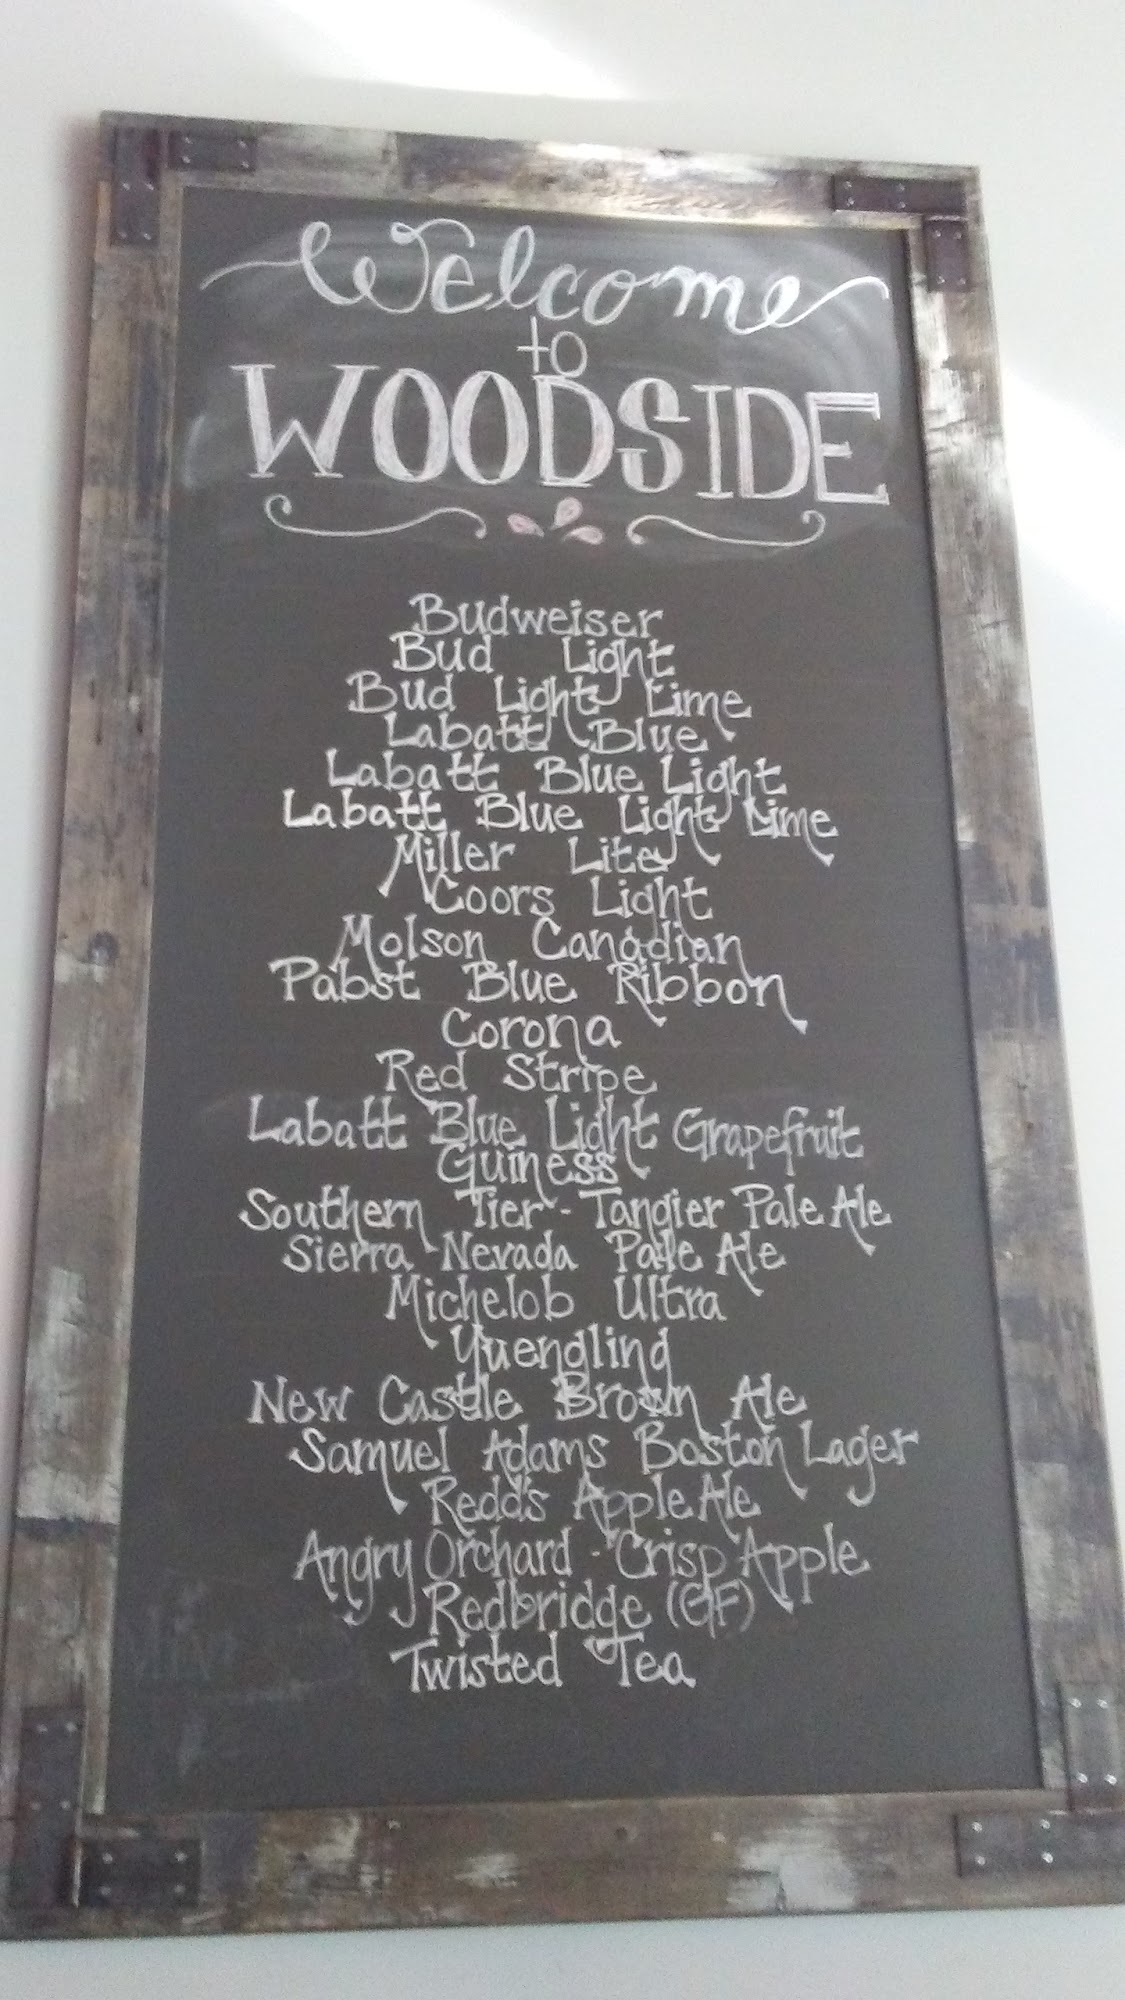 Welcome
to
WOODSIDE
Budweiser
Bud Light
Bud Light Lime
Labatt Blue
Labatt Blue Light
Labatt Blue Light Lime
Miller Lite
Coors Light
Molson Canadian
Pabst Blue Ribbon
Corona
Red Stripe
Labatt Blue Light Grapefruit
Guiness
Southern Tier - Tangier Pale Ale
Sierra Nevada Pale Ale
Michelob Ultra
Yuengling
New Castle Brown Ale
Samuel Adams Boston Lager
Redd's Apple Ale
Angry Orchard - Crisp Apple
Redbridge (GF)
Twisted Tea